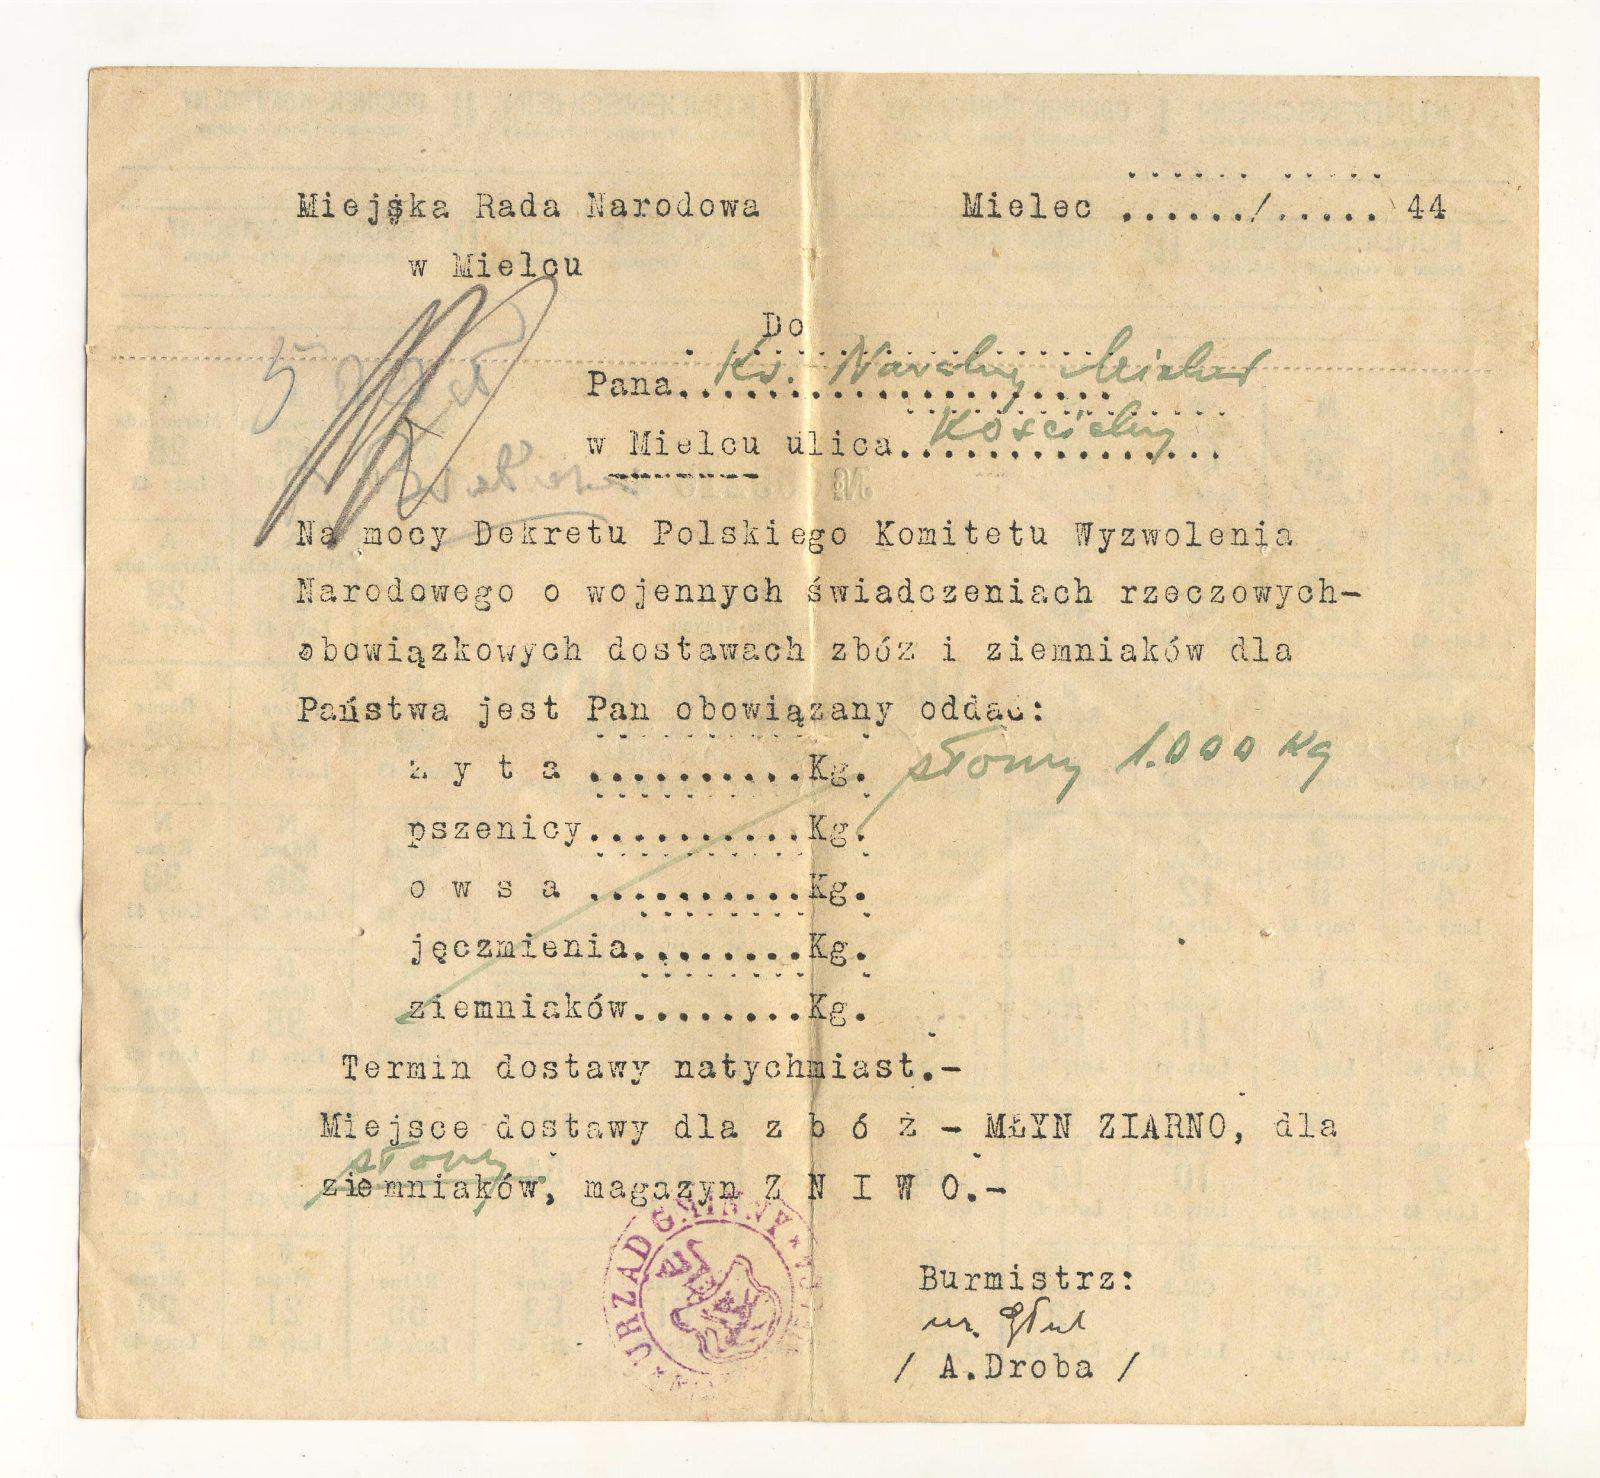 Miejska Rada Narodowa
w Mielcu
Mielec ....../..... 44
Do
Pana
w Mielcu ulica
Na mocy Dekretu Polskiego Komitetu Wyzwolenia
Narodowego o wojennych świadczeniach rzeczowych-
obowiązkowych dostawach zbóż i ziemniaków dla
Państwa jest Pan obowiązany oddać:
ż y t a ..........Kg. słomy 1.000 Kg
pszenicy..........Kg.
o w s a ..........Kg.
jęczmienia........Kg.
ziemniaków........Kg.
Termin dostawy natychmiast.-
Miejsce dostawy dla z b ó ż - MŁYN ZIARNO, dla
słomy
ziemniaków, magazyn Z N I W O.-
URZĄD GMINNY
Burmistrz:
/ A.Droba /